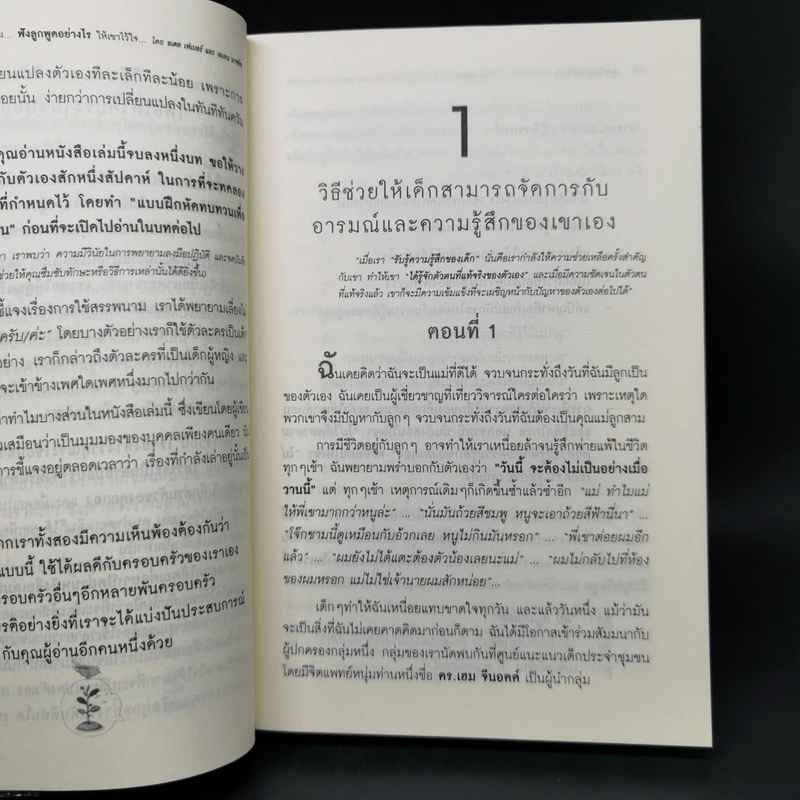 ฟังลูกพูดอย่างไร ให้เขาไว้ใจ... โดย อเดล เฟเบอร์ และ เอเลน มาซลิช
ยนแปลงตัวเองทีละเล็กทีละน้อย เพราะการ
อยนั้น ง่ายกว่าการเปลี่ยนแปลงในทันทีทันควัน
คุณอ่านหนังสือเล่มนี้จบลงหนึ่งบท ขอให้วาง
กับตัวเองสักหนึ่งสัปดาห์ ในการที่จะทดลอง
ที่กำหนดไว้ โดยทำ "แบบฝึกหัดทบทวนเพื่อ
น" ก่อนที่จะเปิดไปอ่านในบทต่อไป
า เราพบว่า ความมีวินัยในการพยายามลงมือปฏิบัติ และจดบันทึก
ช่วยให้คุณซึมซับทักษะหรือวิธีการเหล่านั้นได้ดียิ่งขึ้น)
ชี้แจงเรื่องการใช้สรรพนาม เราได้พยายามเลี่ยงไม่
ครับ/ค่ะ" โดยบางตัวอย่างเราก็ใช้ตัวละครเป็นเด็ก
อย่าง เราก็กล่าวถึงตัวละครที่เป็นเด็กผู้หญิง และ
จะเข้าข้างเพศใดเพศหนึ่งมากไปกว่ากัน
ทำไมบางส่วนในหนังสือเล่มนี้ ซึ่งเขียนโดยผู้เขียน
เสมือนว่าเป็นมุมมองของบุคคลเพียงคนเดียว นั่น
การชี้แจงอยู่ตลอดเวลาว่า เรื่องที่กำลังเล่าอยู่นั้นเป็น
ากเราทั้งสองมีความเห็นพ้องต้องกันว่า
แบบนี้ ใช้ได้ผลดีกับครอบครัวของเราเอง
รอบครัวอื่นๆอีกหลายพันครอบครัว
รติอย่างยิ่งที่เราจะได้แบ่งปันประสบการณ์
กับคุณผู้อ่านอีกคนหนึ่งด้วย
1
วิธีช่วยให้เด็กสามารถจัดการกับ
อารมณ์และความรู้สึกของเขาเอง
"เมื่อเรา "รับรู้ความรู้สึกของเด็ก" นั่นคือเรากำลังให้ความช่วยเหลือครั้งสำคัญ
กับเขา ทำให้เขา "ได้รู้จักตัวตนที่แท้จริงของตัวเอง" และเมื่อมีความชัดเจนในตัวตน
ที่แท้จริงแล้ว เขาก็จะมีความเข้มแข็งที่จะเผชิญหน้ากับปัญหาของตัวเองต่อไปได้"
ตอนที่ 1
ฉันเคยคิดว่าฉันจะเป็นแม่ที่ดีได้ จวบจนกระทั่งถึงวันที่ฉันมีลูกเป็น
ของตัวเอง ฉันเคยเป็นผู้เชี่ยวชาญที่เที่ยววิจารณ์ใครต่อใครว่า เพราะเหตุใด
พวกเขาจึงมีปัญหากับลูกๆ จวบจนกระทั่งถึงวันที่ฉันต้องเป็นคุณแม่ลูกสาม
การมีชีวิตอยู่กับลูกๆ อาจทำให้เราเหนื่อยล้าจนรู้สึกพ่ายแพ้ในชีวิต
ทุกๆเช้า ฉันพยายามพร่ำบอกกับตัวเองว่า "วันนี้ จะต้องไม่เป็นอย่างเมื่อ
วานนี้" แต่ ทุกๆเช้า เหตุการณ์เดิมๆก็เกิดขึ้นซ้ำแล้วซ้ำอีก "แม่ ทำไมแม่
ให้พี่เขามากกว่าหนูล่ะ" ... "นั่นมันถ้วยสีชมพู หนูจะเอาถ้วยสีฟ้านี่นา" ...
"โจ๊กชามนี้ดูเหมือนกับอ้วกเลย หนูไม่กินมันหรอก" ... "พี่เขาต่อยผมอีก
แล้ว" ... "ผมยังไม่ได้แตะต้องตัวน้องเลยนะแม่" ... "ผมไม่กลับไปที่ห้อง
ของผมหรอก แม่ไม่ใช่เจ้านายผมสักหน่อย"...
เด็กๆทำให้ฉันเหนื่อยแทบขาดใจทุกวัน และแล้ววันหนึ่ง แม้ว่ามัน
จะเป็นสิ่งที่ฉันไม่เคยคาดคิดมาก่อนก็ตาม ฉันได้มีโอกาสเข้าร่วมสัมมนากับ
ผู้ปกครองกลุ่มหนึ่ง กลุ่มของเรานัดพบกันที่ศูนย์แนะแนวเด็กประจำชุมชน
โดยมีจิตแพทย์หนุ่มท่านหนึ่งชื่อ ดร.เฮม จีนอตต์ เป็นผู้นำกลุ่ม